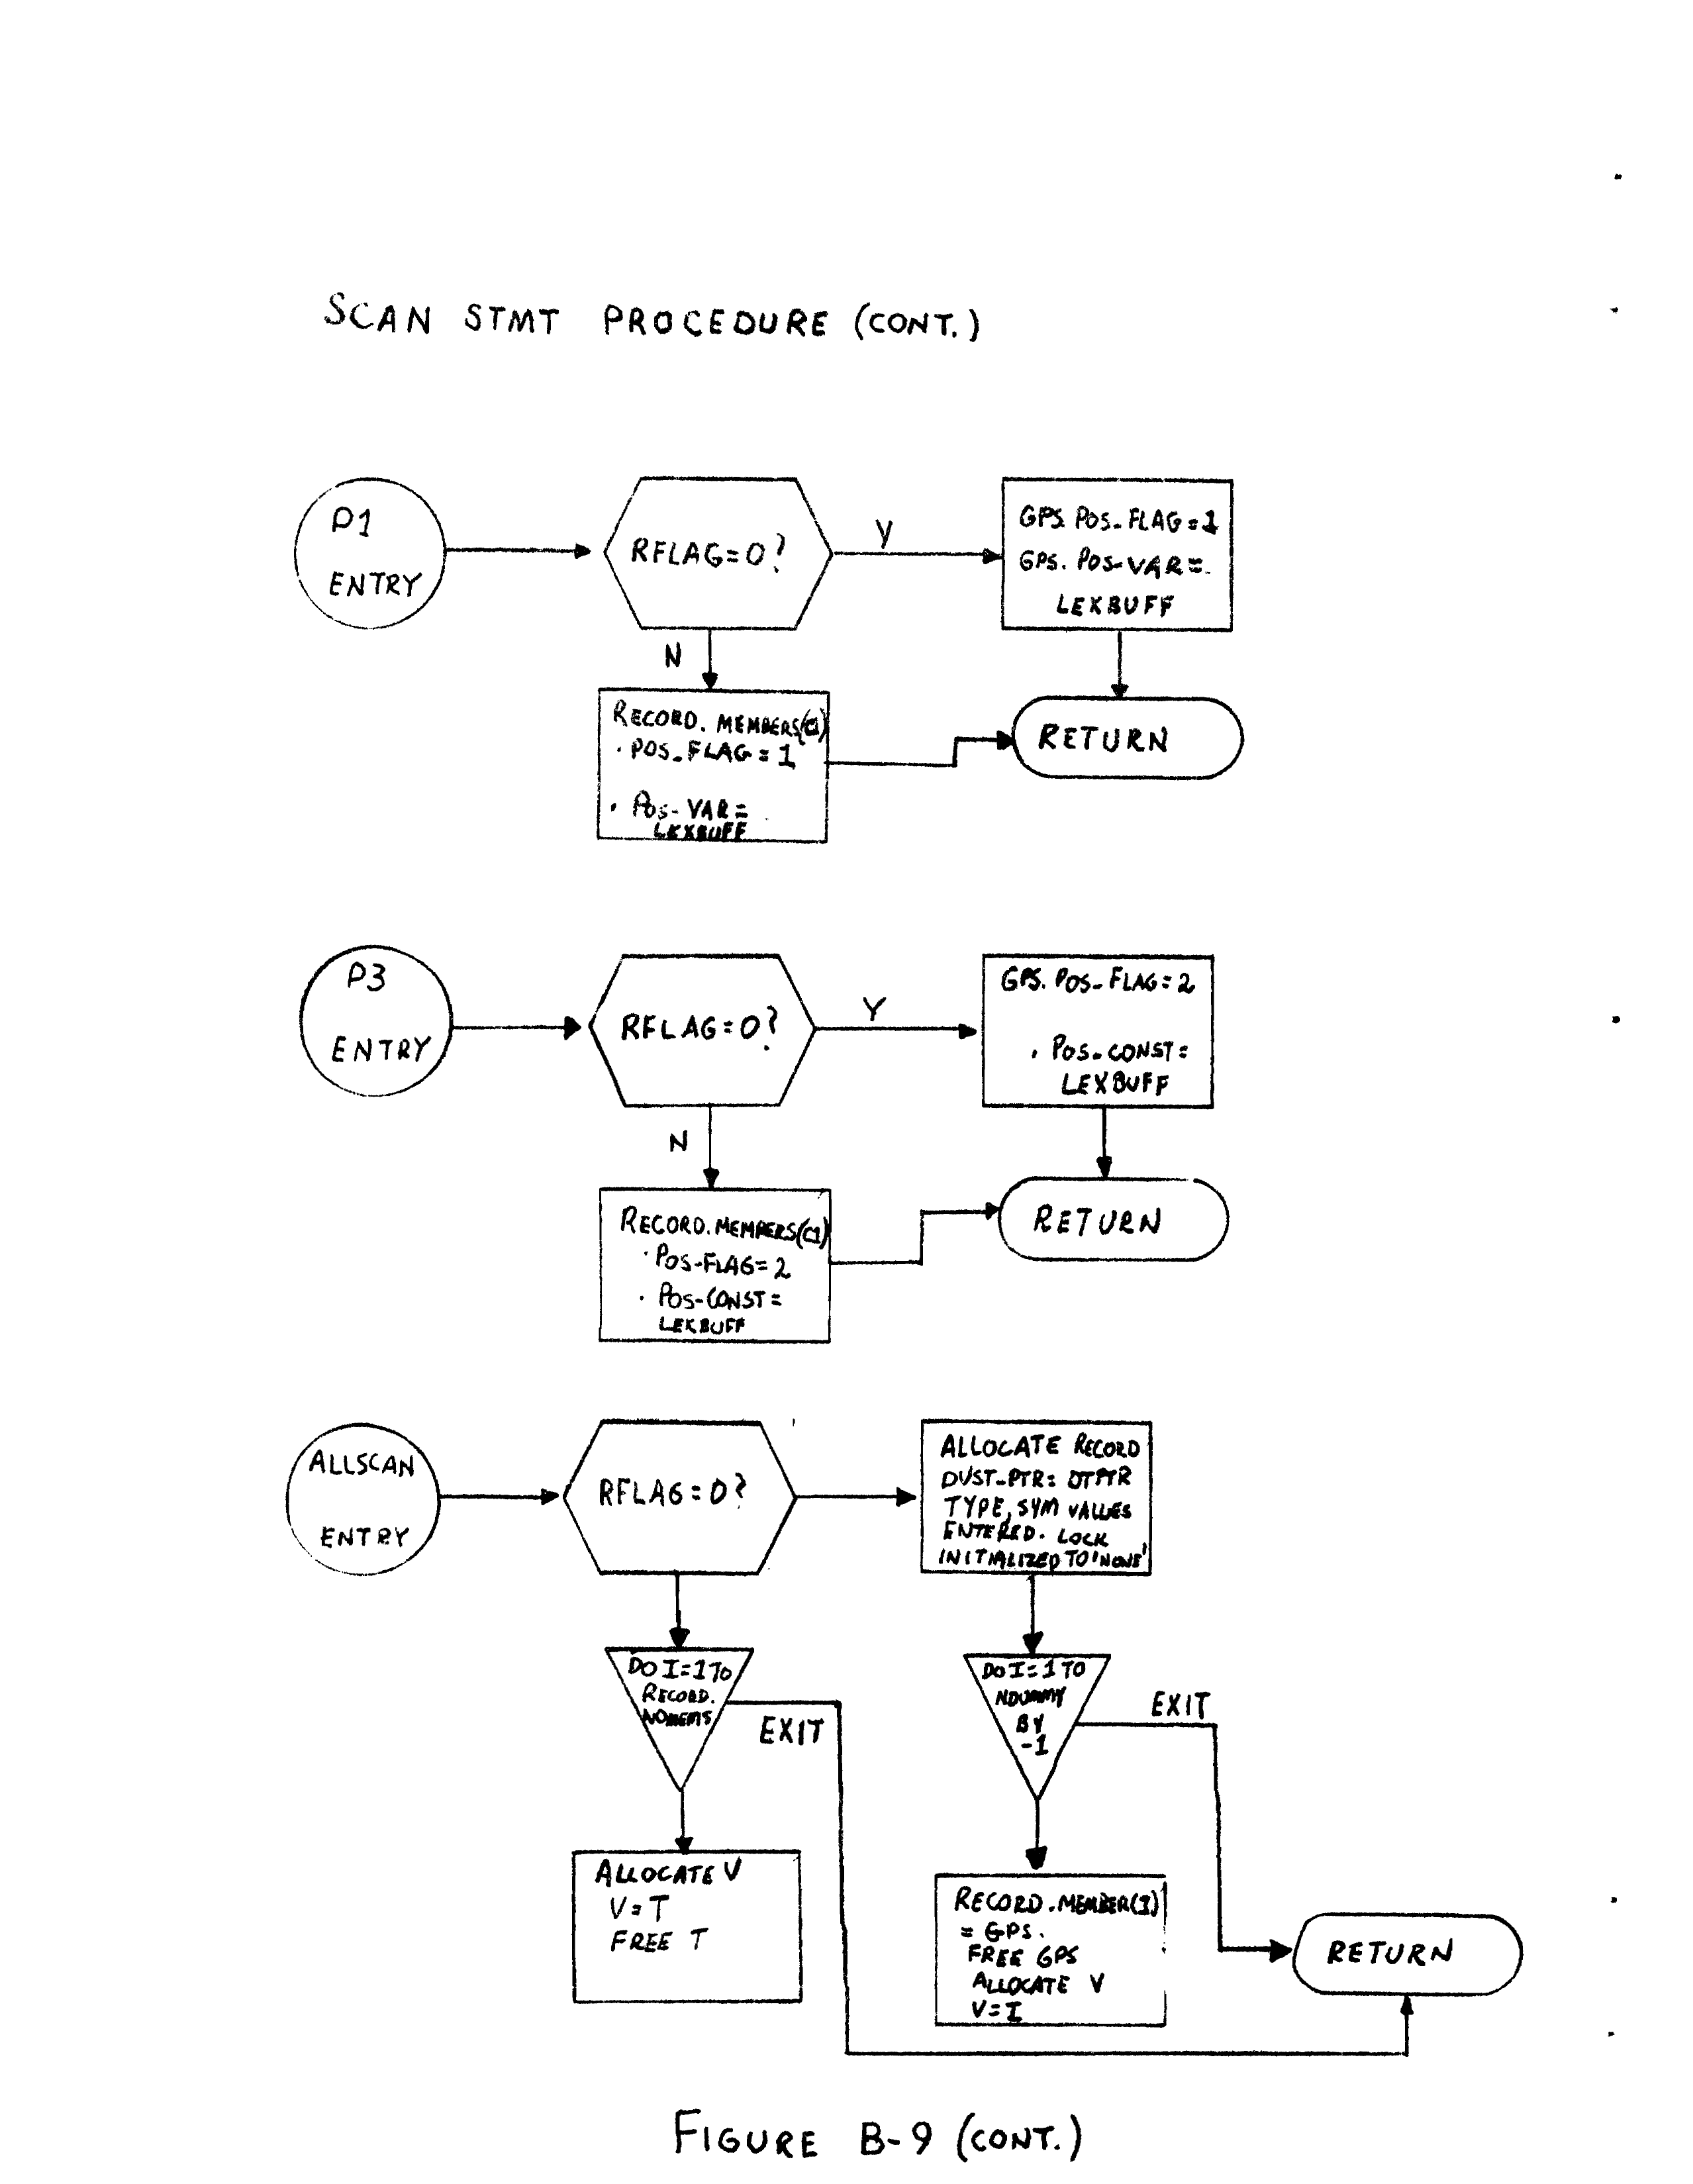 SCAN STMT PROCEDURE (CONT.)
P1
ENTRY
RFLAG=0?
Y
GPS. POS-FLAG=1
GPS. POS-VAR=
LEXBUFF
N
RECORD. MEMBERS(C1)
. POS-FLAG=1
. POS-VAR=
LEXBUFF
RETURN
P3
ENTRY
RFLAG=0?
Y
GPS. POS-FLAG=2
. POS-CONST=
LEXBUFF
N
RECORD.MEMBERS(C1)
. POS-FLAG=2
. POS-CONST=
LEXBUFF
RETURN
ALLSCAN
ENTRY
RFLAG=0?
ALLOCATE RECORD
DUST-PTR= DTPTR
TYPE, SYM VALUES
ENTERED. LOCK
INITIALIZED TO 'NONE'
DO I=1 TO
RECORD.
NOMEMS
EXIT
DO I=1 TO
NDUMMY
BY
-1
EXIT
ALLOCATE V
V=T
FREE T
RECORD.MEMBER(I)
= GPS.
FREE GPS
ALLOCATE V
V=I
RETURN
FIGURE B-9 (CONT.)